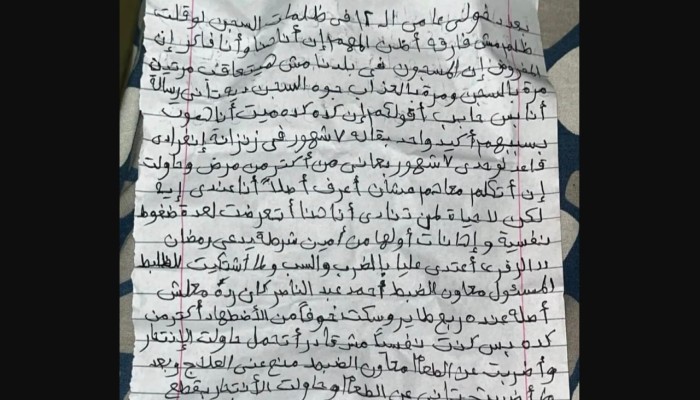 بعد دخولي عامي الـ ١٢ في ظلمات السجن لو قلت
ظلم مش فارقه أظن المهم إن أنا هنا وأنا فاكر إن
المفروض إن المسجون في بلدنا مش هيتعاقب مرتين
مرة بالسجن ومرة بالعذاب جوه السجن دي تاني رسالة
أنا بس حابب أقولكم إن كده كده ميت أنا هموت
بسببهم أكيد واحد بقاله ٧ شهور في زنزانة إنفرادي
قاعد لوحدي ٧ شهور بعاني من أكتر من مرض وحاولت
إن أتكلم معاهم عشان أعرف أصلاً أنا عندي إيه
لكن لا حياة لمن تنادي أنا هنا أتعرضت لعدة ضغوط
نفسية وإهانات أولها من أمين شرطة يدعي رمضان
أعتدي عليا بالضرب والسب ولما أشتكيت للظابط
المسئول معاون الضبط أحمد عبد الناصر كان رده معلش
أصله عنده ربع طاير وسكت خوفاً من الأضطهاد أكتر من
كده بس كنت نفسياً مش قادر أتحمل حاولت الإنتحار
وأضربت عن الطعام معاون الضبط منع عني العلاج وبعد
تاني عن الطعام وحاولت الأنتحار بقطع